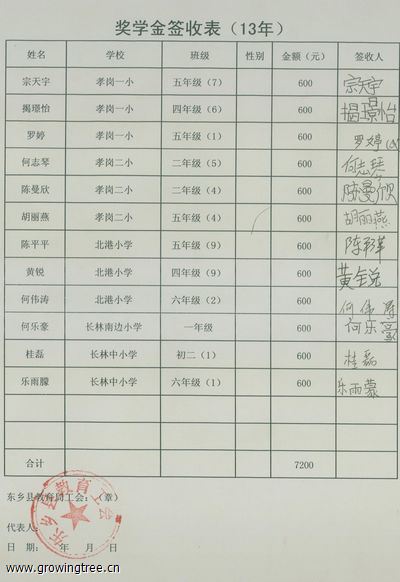 奖学金签收表（13年）
姓名 学校 班级 性别 金额（元） 签收人
宗天宇 孝岗一小 五年级（7） 600 宗天宇
揭璟怡 孝岗一小 四年级（6） 600 揭璟怡
罗婷 孝岗一小 五年级（1） 600 罗婷
何志琴 孝岗二小 二年级（5） 600 何志琴
陈曼欣 孝岗二小 二年级（4） 600 陈曼欣
胡丽燕 孝岗二小 五年级（4） 600 胡丽燕
陈平平 北港小学 五年级（9） 600
黄锐 北港小学 四年级（9） 600 黄锐
何伟涛 北港小学 六年级（2） 600 何伟涛
何乐豪 长林南边小学 一年级 600 何乐豪
桂磊 长林中小学 初二（1） 600 桂磊
乐雨朦 长林中小学 六年级（1） 600 乐雨蒙
合计 7200
东乡县教育局工会：（章）
代表人：
日期： 年 月 日
东乡县教育工会
www.growingtree.cn